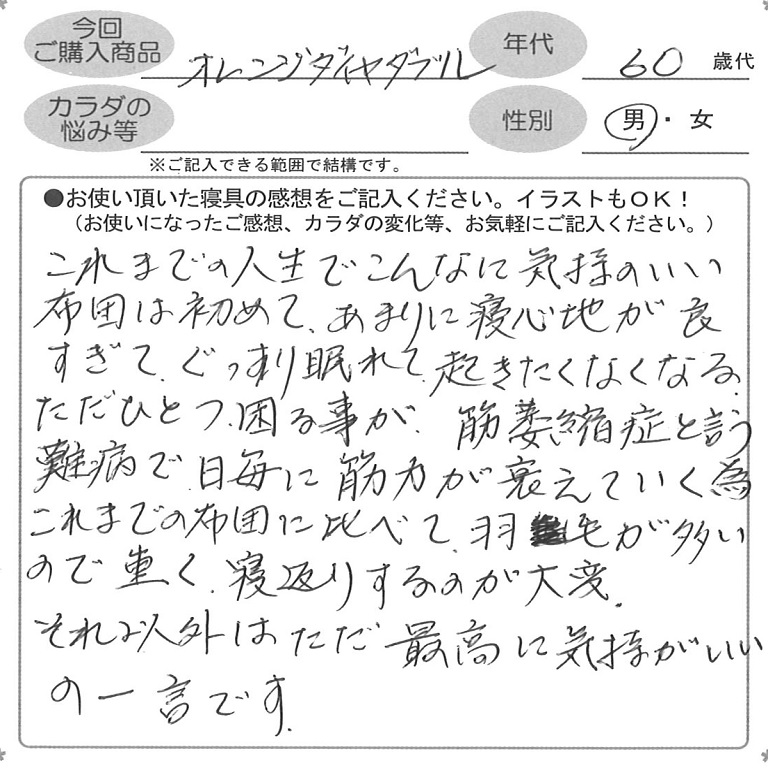 今回
ご購入商品
オレンジダイヤダブル
年代
60 歳代
カラダの
悩み等
性別
男・女
※ご記入できる範囲で結構です。
●お使い頂いた寝具の感想をご記入ください。イラストもOK!
(お使いになったご感想、カラダの変化等、お気軽にご記入ください。)
これまでの人生でこんなに気持のいい
布団は初めて、あまりに寝心地が良
すぎて、ぐっすり眠れて、起きたくなくなる。
ただひとつ、困る事が、筋萎縮症と言う
難病で日毎に筋力が衰えていく為
これまでの布団に比べて、羽毛が多い
ので重く、寝返りするのが大変。
それ以外はただ最高に気持がいい
の一言です。